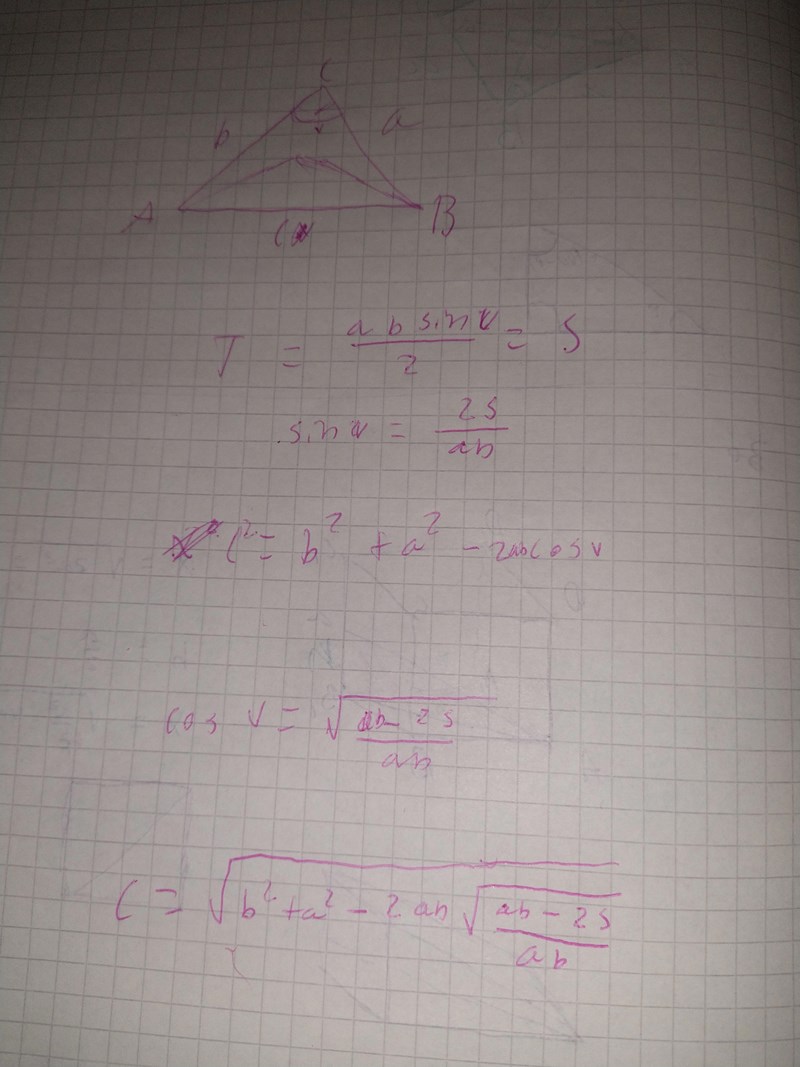 C
b a
v
A B
c
T = \frac{a b sin v}{2} = S
sin v = \frac{2S}{ab}
c² = b² + a² - 2ab cos v
cos v = \sqrt{\frac{ab - 2S}{ab}}
c = \sqrt{b² + a² - 2ab \sqrt{\frac{ab - 2S}{ab}}}